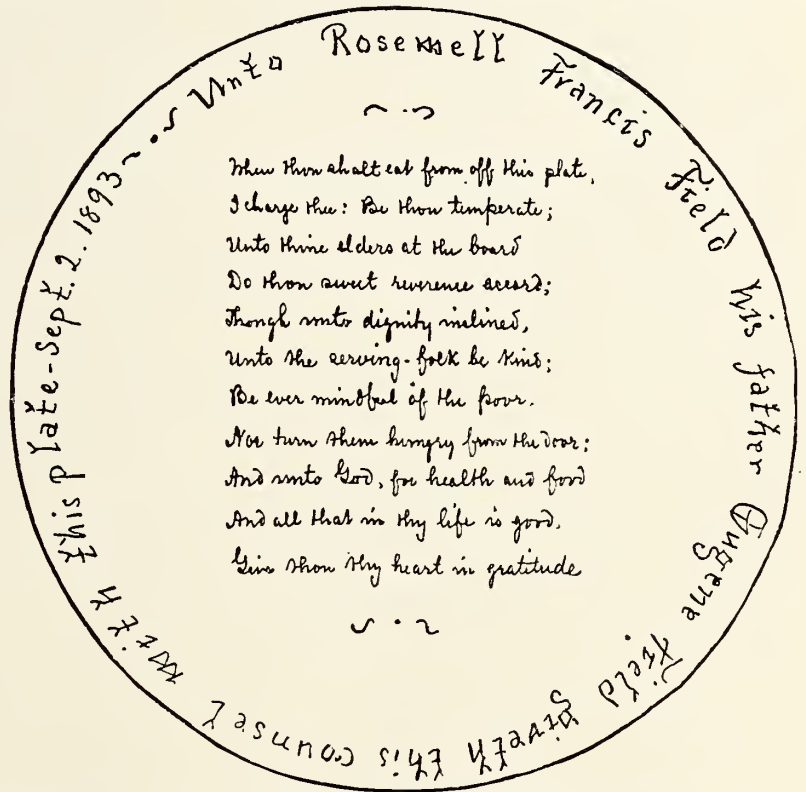 Unto Rosewell Francis Field his father Eugene Field giveth this counsel with this plate - Sept. 2. 1893
When thou shalt eat from off this plate,
I charge thee: Be thou temperate;
Unto thine elders at the board
Do thou sweet reverence accord;
Though unto dignity inclined,
Unto the serving-folk be kind;
Be ever mindful of the poor.
Nor turn them hungry from the door;
And unto God, for health and food
And all that in thy life is good,
Give thou thy heart in gratitude